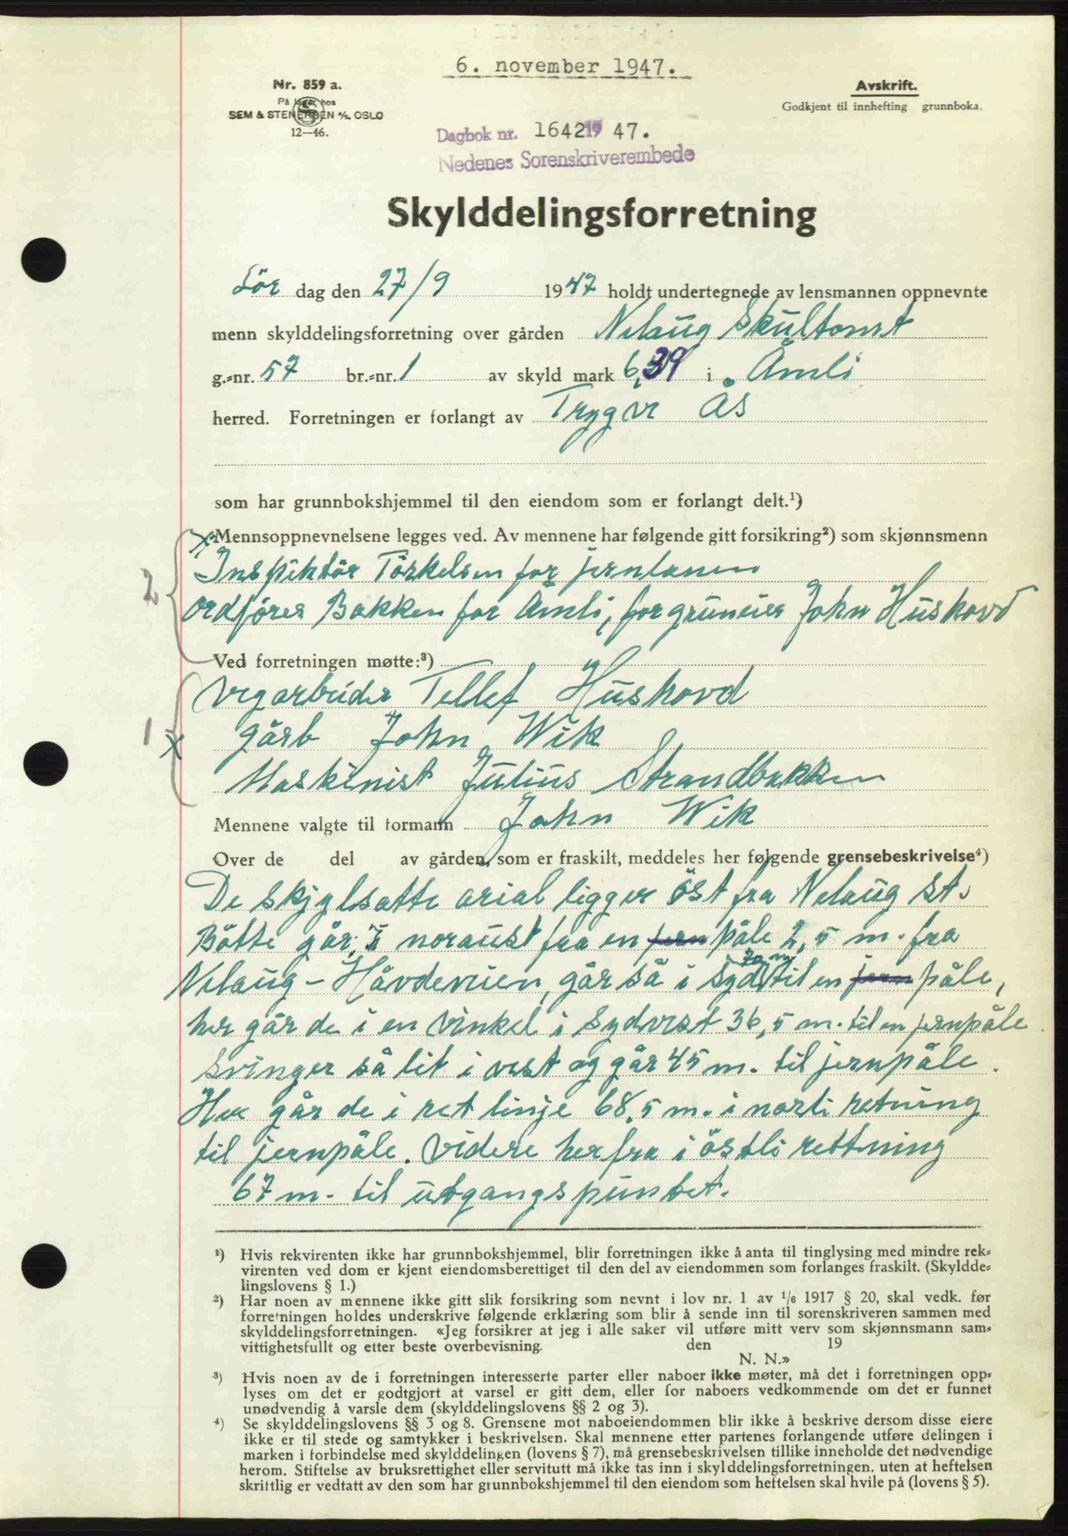 6. november 1947.
Nr. 859 a.
På lager hos
SEM & STENERSEN A/S, OSLO
12—46.
Avskrift.
Godkjent til innhefting grunnboka.
Dagbok nr. 1642 19 47.
Nedenes Sorenskriverembede
Skylddelingsforretning
Lör dag den 27/9 1947 holdt undertegnede av lensmannen oppnevnte
menn skylddelingsforretning over gården Nelaug Skultomt
g.-nr. 57 br.-nr. 1 av skyld mark 6,39 i Åmli
herred. Forretningen er forlangt av Trygve Ås
som har grunnbokshjemmel til den eiendom som er forlangt delt.¹)
Mennsoppnevnelsene legges ved. Av mennene har følgende gitt forsikring²) som skjønnsmenn
Inspiktör Törkelsen for jernbanen
2 ordförer Bakken for Åmli, for gruneier John Huskovd
Ved forretningen møtte:³)
vegarbeider Tellef Huskovd
1 x gårb John Wik
Maskinist Julius Strandbakken
Mennene valgte til formann John Wik
Over de del av gården, som er fraskilt, meddeles her følgende grensebeskrivelse⁴)
De skjylsatte arial ligger öst fra Nelaug st.
Bötte går i noraust fra en jern påle 2,5 m. fra
Nelaug - Håvdeveien, går så i syd 70 m. til en jern påle,
her går de i en vinkel i sydvest 36,5 m. til en jernpåle
svinger så lit i vest og går 45 m. til jernpåle.
Her går de i ret linje 68,5 m. i norli retning
til jernpåle. Videre her fra i östli rettning
67 m. til utgangspuntet.
¹) Hvis rekvirenten ikke har grunnbokshjemmel, blir forretningen ikke å anta til tinglysing med mindre rek-
virenten ved dom er kjent eiendomsberettiget til den del av eiendommen som forlanges fraskilt. (Skyldde-
lingslovens § 1.)
²) Har noen av mennene ikke gitt slik forsikring som nevnt i lov nr. 1 av 1/6 1917 § 20, skal vedk. før
forretningen holdes underskrive følgende erklæring som blir å sende inn til sorenskriveren sammen med
skylddelingsforretningen. «Jeg forsikrer at jeg i alle saker vil utføre mitt verv som skjønnsmann sam-
vittighetsfullt og etter beste overbevisning. den 19
N. N.»
³) Hvis noen av de i forretningen interesserte parter eller naboer ikke møter, må det i forretningen opp-
lyses om det er godtgjort at varsel er gitt dem, eller for naboers vedkommende om det er funnet
unødvendig å varsle dem (skylddelingslovens §§ 2 og 3).
⁴) Se skylddelingslovens §§ 3 og 8. Grensene mot naboeiendommen blir ikke å beskrive dersom disse eiere
ikke er til stede og samtykker i beskrivelsen. Skal mennene etter partenes forlangende utføre delingen i
marken i forbindelse med skylddelingen (lovens § 7), må grensebeskrivelsen tillike inneholde det nødvendige
herom. Stiftelse av bruksrettighet eller servitutt må ikke tas inn i skylddelingsforretningen, uten at heftelsen
skriftlig er vedtatt av den som har grunnbokshjemmel til den eiendom som heftelsen skal hvile på (lovens § 5).